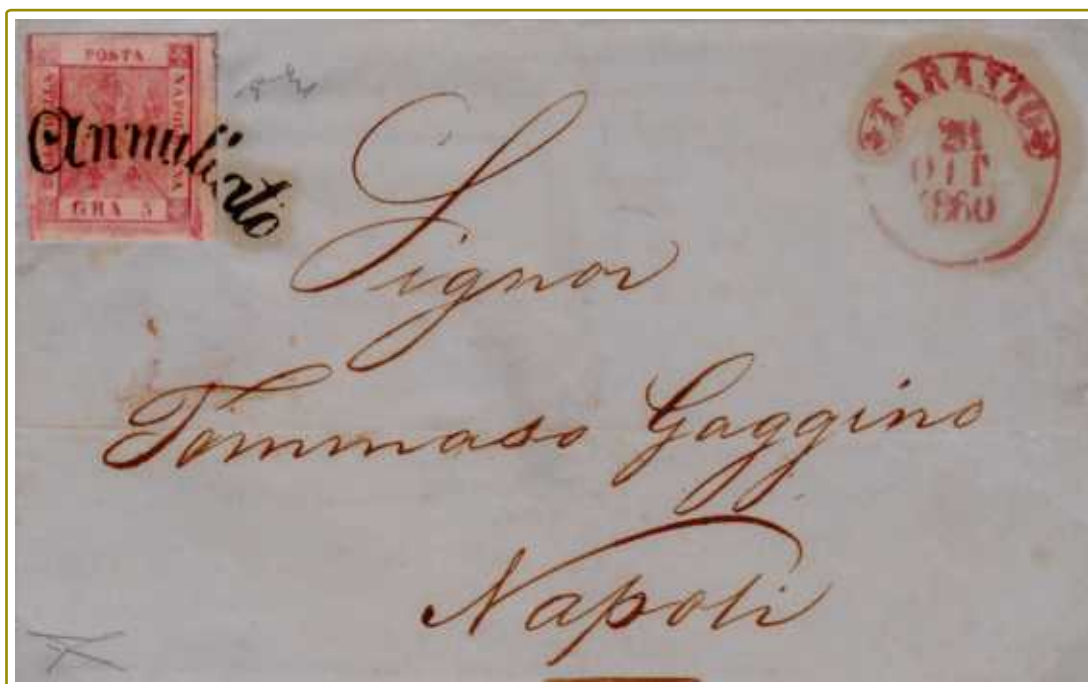 POSTA
NAPOLETANA
GRA 5
Annullato
TARANTO
21
OTT
1860
Signor
Tommaso Gaggino
Napoli